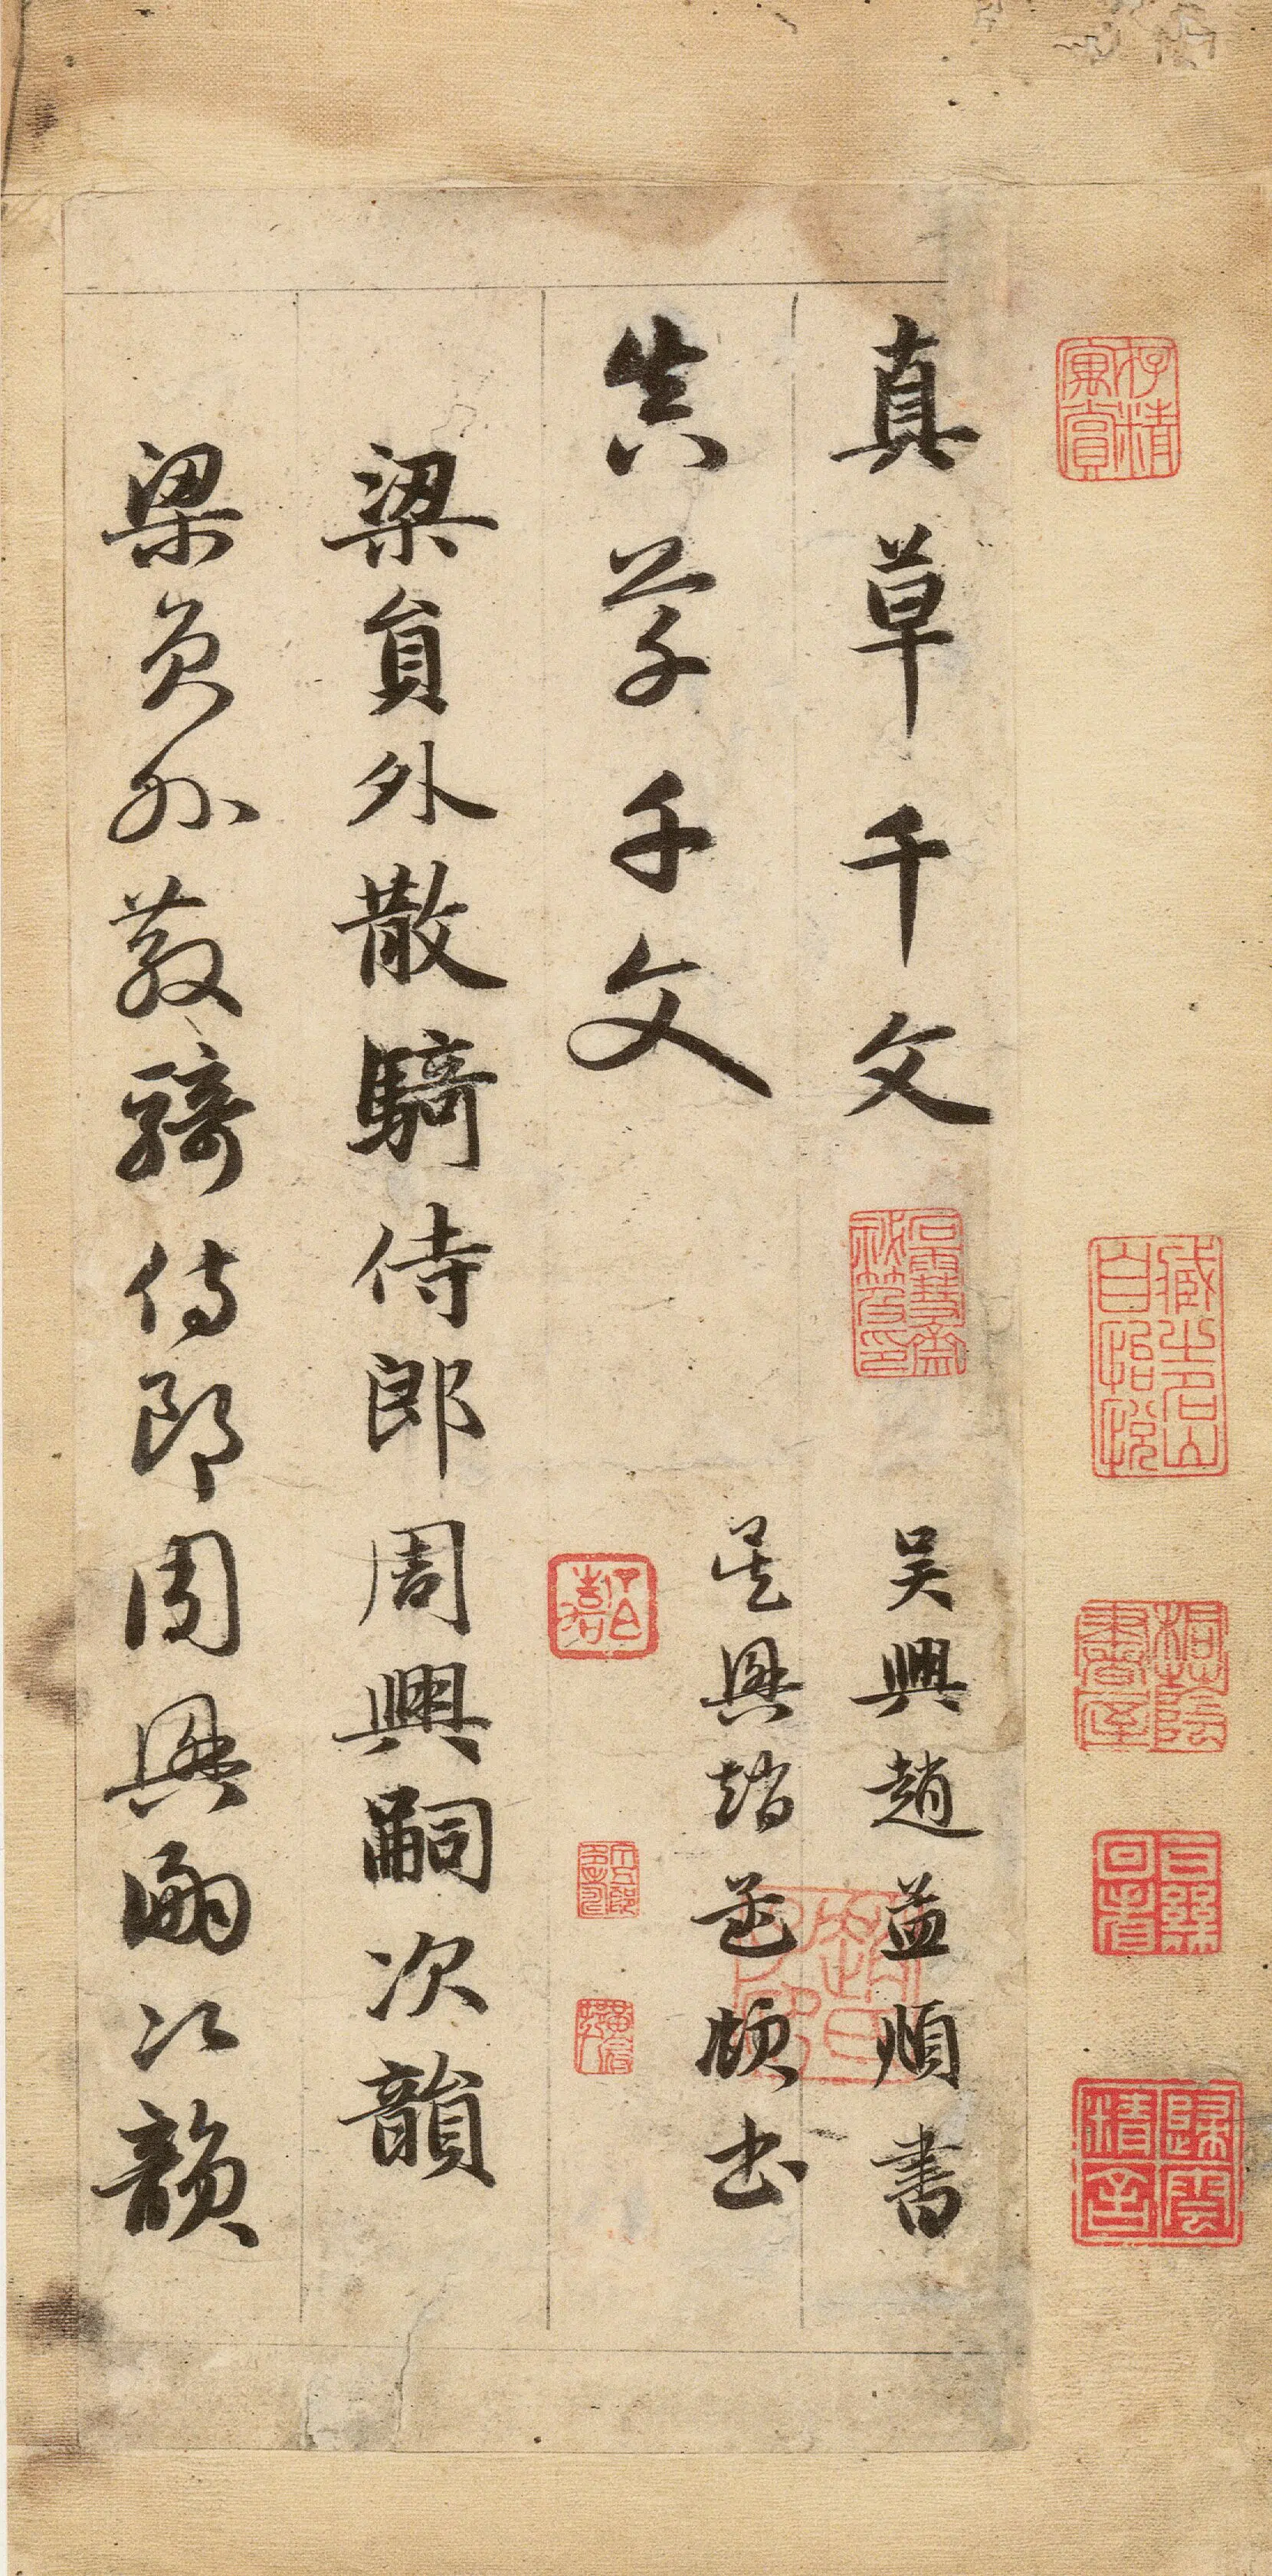 藏之名山自怡悅
真草千文
吳興趙孟頫書
真草千文
吳興趙孟頫書
梁員外散騎侍郎周興嗣次韻
梁員外散騎侍郎周興嗣次韻